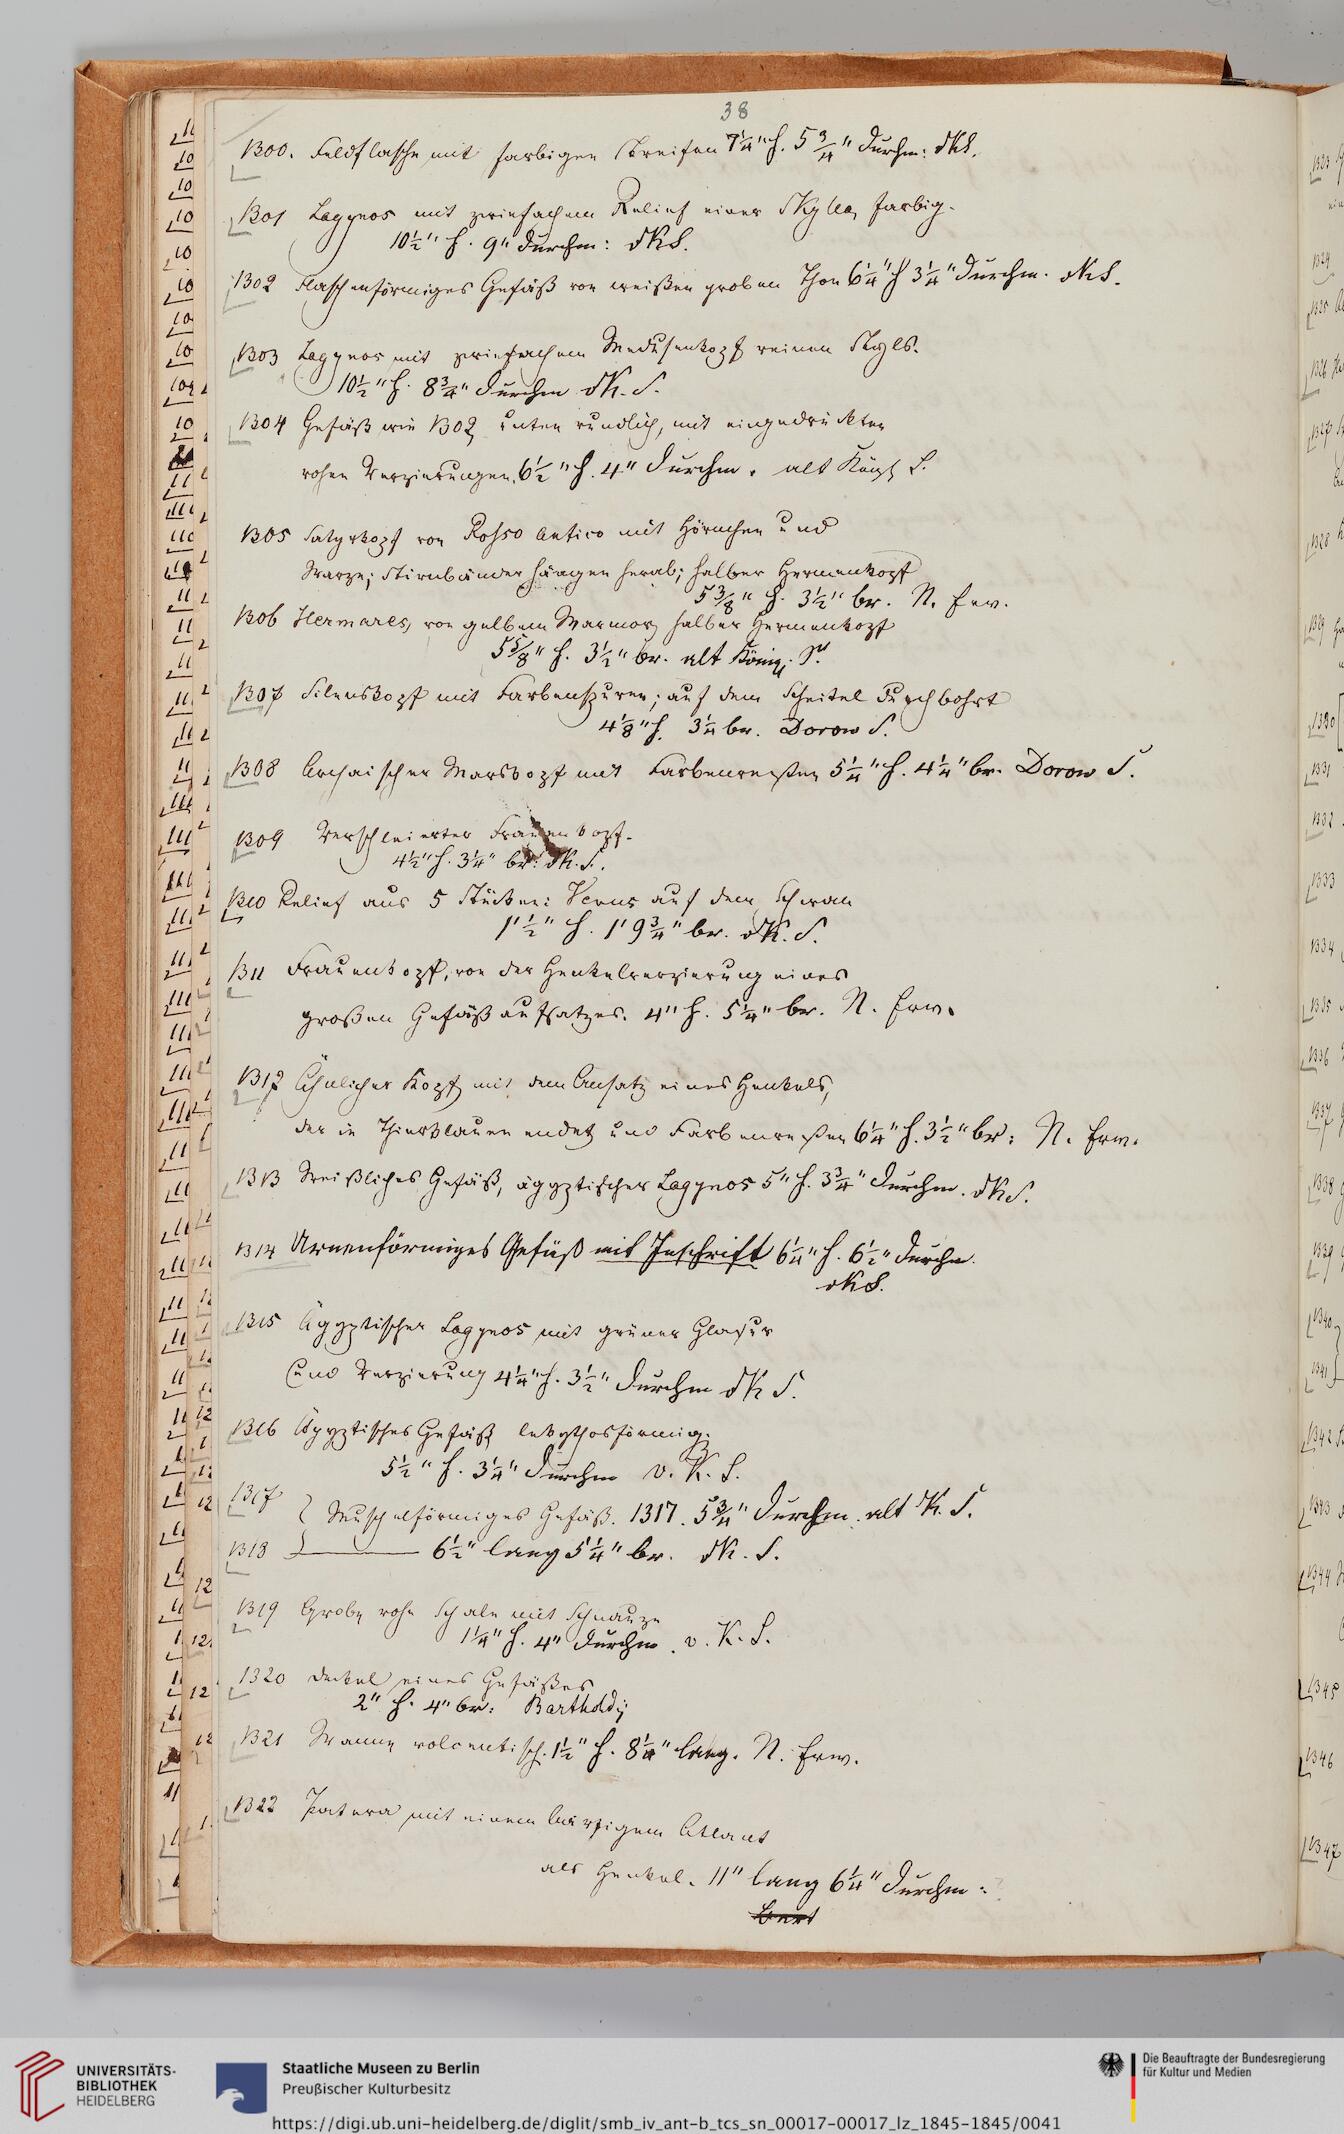 38
1300. Feldflasche mit farbigen Streifen 7¼" h. 5¾" Durchm: dKS.
1301 Lagynos mit zwiefachem Relief einer Skylla, farbig.
10½" h. 9" Durchm: dKS.
1302 Flaschenförmiges Gefäß von weißem groben Thon 6¼" h 3¼" Durchm. dKS.
1303 Lagynos mit zwiefachem Medusenkopf reinen Styls.
10½" h. 8¾" Durchm dK. S.
1304 Gefäß wie 1302 unten rundlich, mit eingedrückten
rohen Verzierungen. 6½" h. 4" Durchm. alt Königl S.
1305 Satyrkopf von Rosso antico mit Hörnchen und
Warze; Stirnbänder hängen herab; halber Hermenkopf
5⅜" h. 3½" br. N. Erw.
1306 Hermares, von gelbem Marmor, halber Hermenkopf
5⅝" h. 3½" br. alt Königl. S.
1307 Silenskopf mit Farbenspuren; auf dem Scheitel durchbohrt
4⅛" h. 3¼ br. Dorow S.
1308 Archaischer Marskopf mit Farbenresten 5¼" h. 4¼" br. Dorow S.
1309 Verschleierter Frauenkopf.
4½" h. 3¼" br: dK. S.
1310 Relief aus 5 Stücken: Venus auf dem Schwan
1' ½" h. 1' 9¾" br. dK. S.
1311 Frauenkopf, von der Henkelverzierung eines
großen Gefäßaufsatzes. 4" h. 5¼" br. N. Erw.
1312 Ähnlicher Kopf mit dem Ansatz eines Henkels,
der in Thierklauen endet und Farbenresten 6¼" h. 3½" br: N. Erw.
1313 Weißliches Gefäß, ägyptischer Lagynos 5" h. 3¾" Durchm. dKS.
1314 Urnenförmiges Gefäß mit Inschrift 6¼" h. 6½" Durchm.
dKS.
1315 Ägyptischer Lagynos mit grüner Glasur
und Verzierung 4¼" h. 3½" Durchm dK S.
1316 Ägyptisches Gefäß lekythosförmig.
5½" h. 3¼" Durchm v. K. S.
1317 } Muschelförmiges Gefäß. 1317. 5¾" Durchm. alt K. S.
1318 } ——— 6½" lang 5¼" br. dK. S.
1319 Grobe rohe Schale mit Schnauze
1¼" h. 4" Durchm. v. K. S.
1320 Deckel eines Gefäßes
2" h. 4" br: Bartholdy
1321 Wanne volcentisch. 1½" h. 8¼" lang. N. Erw.
1322 Patera mit einem bärtigem Atlant
als Henkel. 11" lang 6¼" Durchm:
UNIVERSITÄTS-
BIBLIOTHEK
HEIDELBERG
Staatliche Museen zu Berlin
Preußischer Kulturbesitz
Die Beauftragte der Bundesregierung
für Kultur und Medien
https://digi.ub.uni-heidelberg.de/diglit/smb_iv_ant-b_tcs_sn_00017-00017_lz_1845-1845/0041